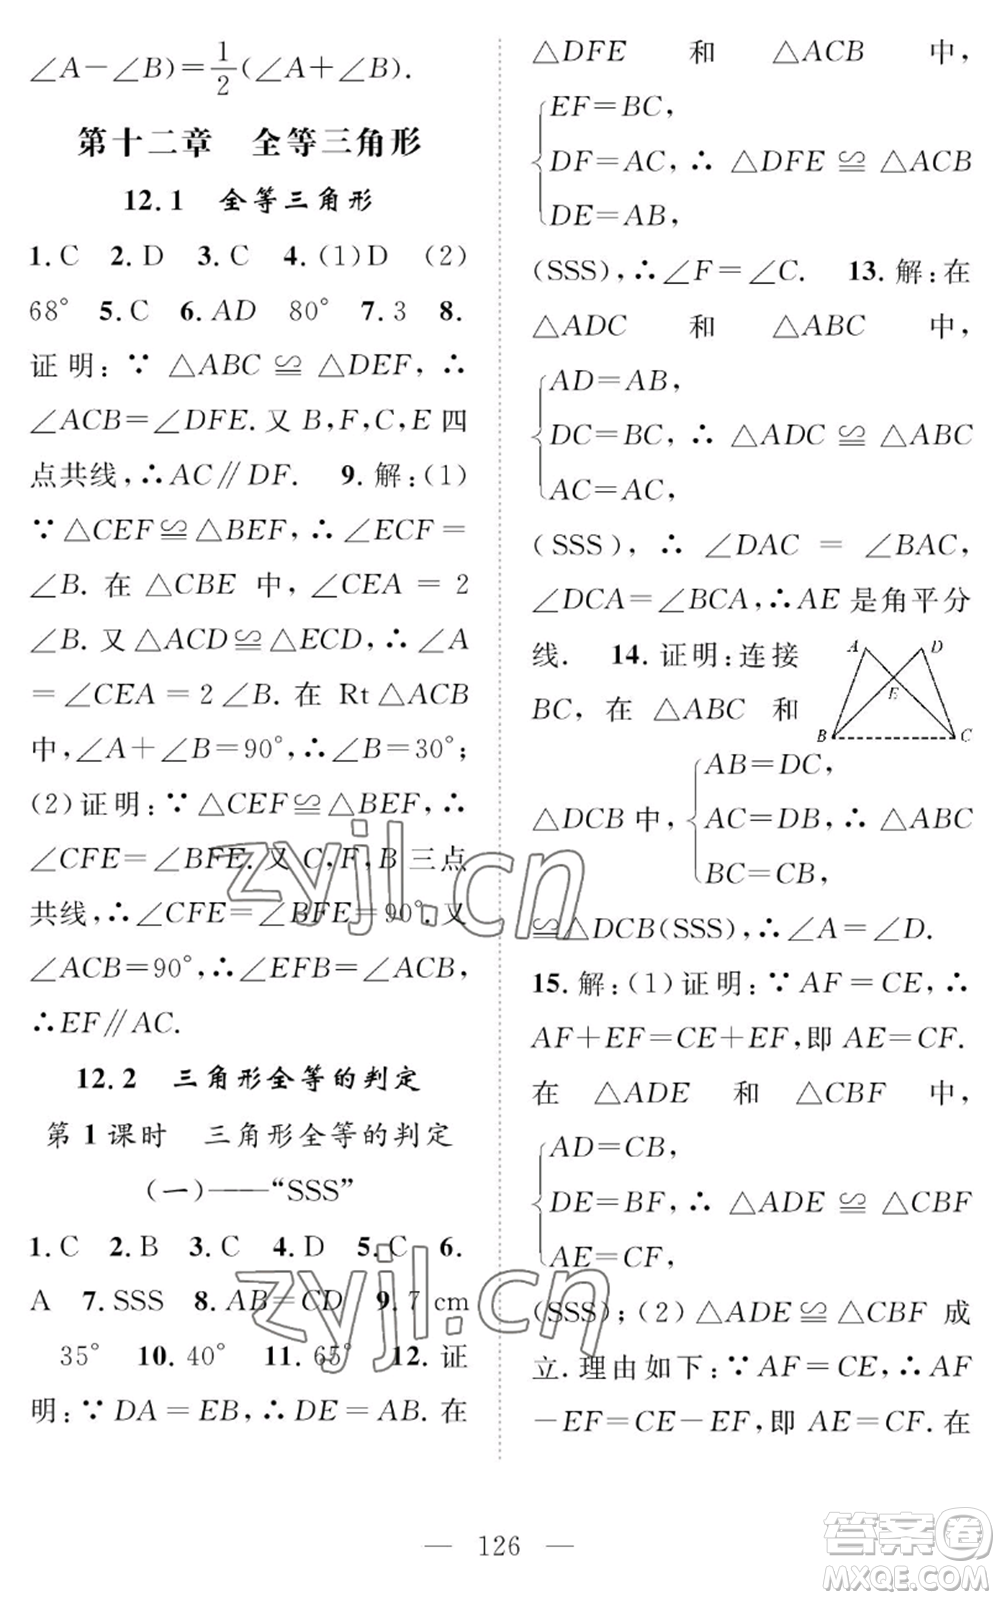 ∠A－∠B)＝1/2(∠A＋∠B).
第十二章　全等三角形
12.1　全等三角形
1.C　2.D　3.C　4.(1)D　(2)
68°　5.C　6.AD　80°　7.3　8.
证明：∵△ABC≌△DEF，∴
∠ACB＝∠DFE.又B,F,C,E四
点共线，∴AC∥DF.　9.解：(1)
∵△CEF≌△BEF，∴∠ECF＝
∠B.在△CBE中，∠CEA＝2
∠B.又△ACD≌△ECD，∴∠A
＝∠CEA＝2∠B.在Rt△ACB
中，∠A＋∠B＝90°，∴∠B＝30°；
(2)证明：∵△CEF≌△BEF，∴
∠CFE＝∠BFE.又C,F,B三点
共线，∴∠CFE＝∠BFE＝90°.又
∠ACB＝90°，∴∠EFB＝∠ACB，
∴EF∥AC.
12.2　三角形全等的判定
第1课时　三角形全等的判定
(一)——“SSS”
1.C　2.B　3.C　4.D　5.C　6.
A　7.SSS　8.AB＝CD　9.7 cm
35°　10.40°　11.65°　12.证
明：∵DA＝EB，∴DE＝AB.在
△DFE和△ACB中，
EF＝BC，
DF＝AC，∴△DFE≌△ACB
DE＝AB，
(SSS)，∴∠F＝∠C.　13.解：在
△ADC和△ABC中，
AD＝AB，
DC＝BC，∴△ADC≌△ABC
AC＝AC，
(SSS)，∴∠DAC＝∠BAC，
∠DCA＝∠BCA，∴AE是角平分
线.　14.证明：连接
BC，在△ABC和
A D
E
B C
△DCB中，
AB＝DC，
AC＝DB，∴△ABC
BC＝CB，
≌△DCB(SSS)，∴∠A＝∠D.
15.解：(1)证明：∵AF＝CE，∴
AF＋EF＝CE＋EF，即AE＝CF.
在△ADE和△CBF中，
AD＝CB，
DE＝BF，∴△ADE≌△CBF
AE＝CF，
(SSS)；(2)△ADE≌△CBF成
立.理由如下：∵AF＝CE，∴AF
－EF＝CE－EF，即AE＝CF.在
— 126 —
zyjl.cn
zyjl.cn
答案圈
MXQE.COM